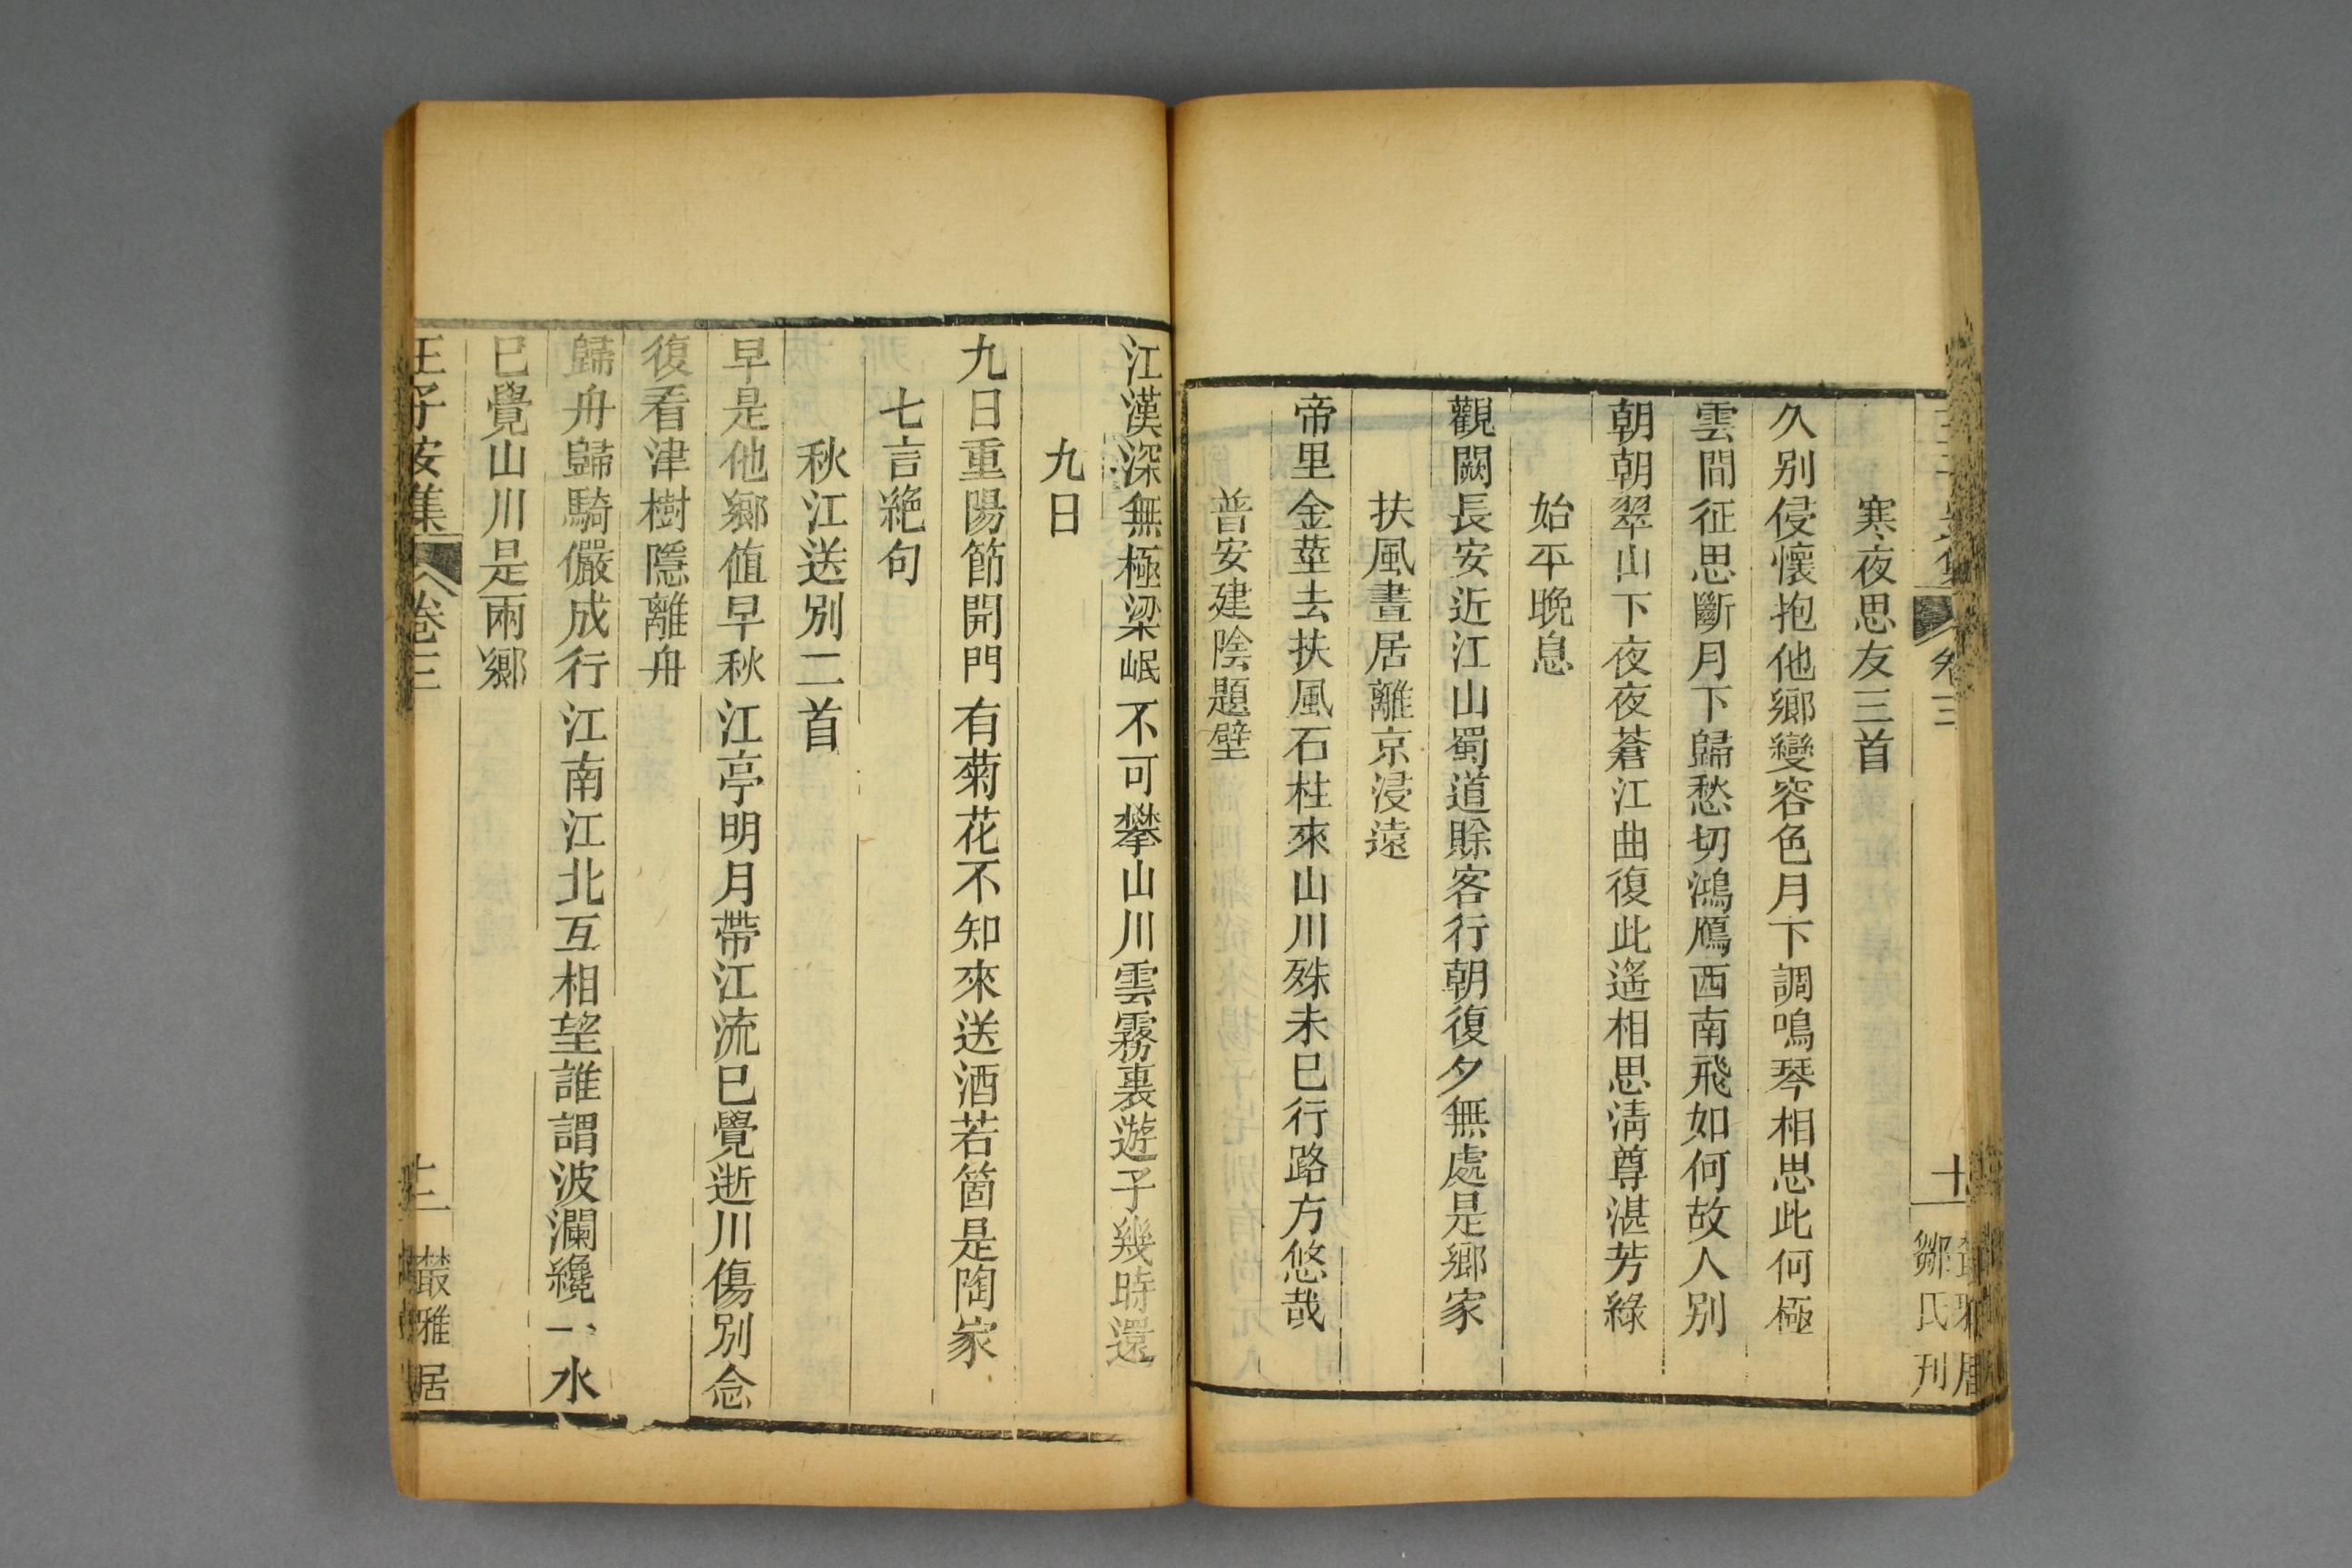 寒夜思友三首
久別侵懷抱他鄉變容色月下調鳴琴相思此何極
雲間征思斷月下歸愁切鴻鴈西南飛如何故人別
朝朝翠山下夜夜蒼江曲復此遙相思清尊湛芳綠
始平晚息
觀闕長安近江山蜀道賒客行朝復夕無處是鄉家
扶風晝居離京浸遠
帝里金莖去扶風石柱來山川殊未巳行路方悠哉
普安建陰題壁
鄒氏刊
江漢深無極梁岷不可攀山川雲霧裏遊子幾時還
九日
九日重陽節開門有菊花不知來送酒若箇是陶家
七言絕句
秋江送別二首
早是他鄉值早秋江亭明月帶江流巳覺逝川傷別念
復看津樹隱離舟
歸舟歸騎儼成行江南江北互相望誰謂波瀾纔一水
巳覺山川是兩鄉
王子安集 卷三
十一
叢雅居